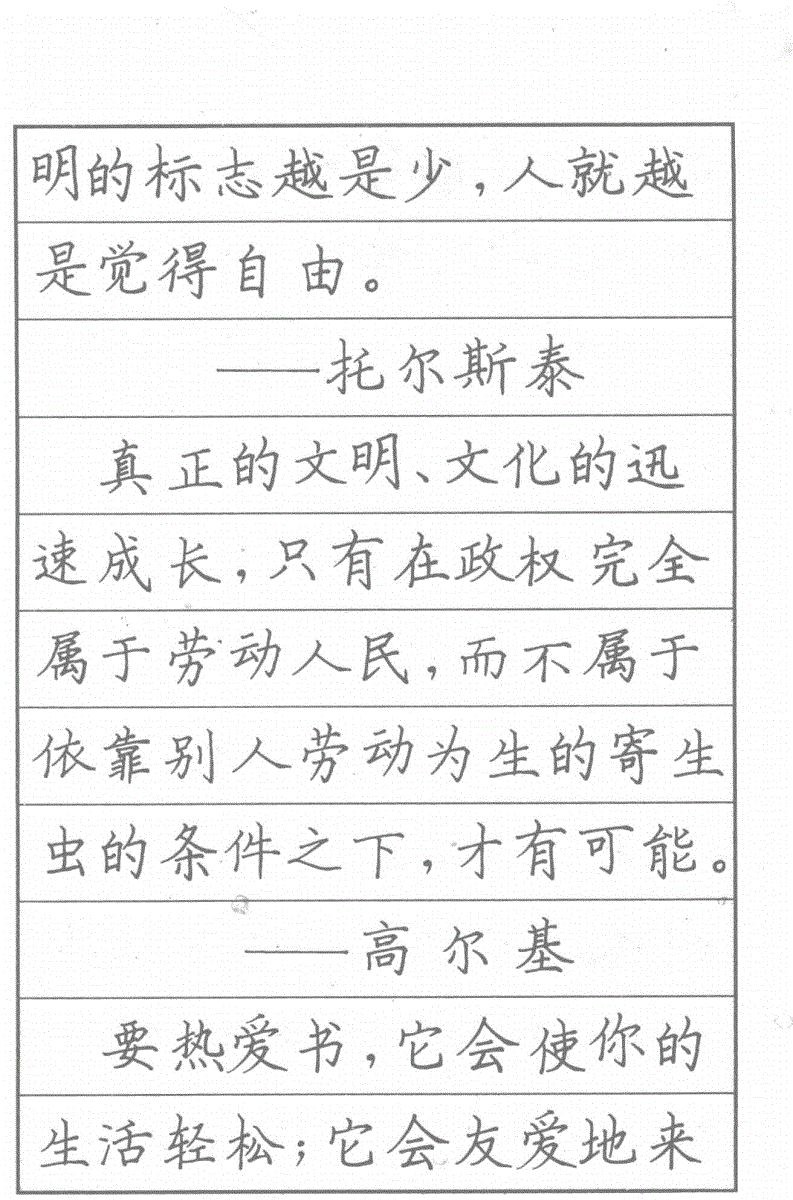 明的标志越是少，人就越
是觉得自由。
——托尔斯泰
真正的文明、文化的迅
速成长，只有在政权完全
属于劳动人民，而不属于
依靠别人劳动为生的寄生
虫的条件之下，才有可能。
——高尔基
要热爱书，它会使你的
生活轻松；它会友爱地来